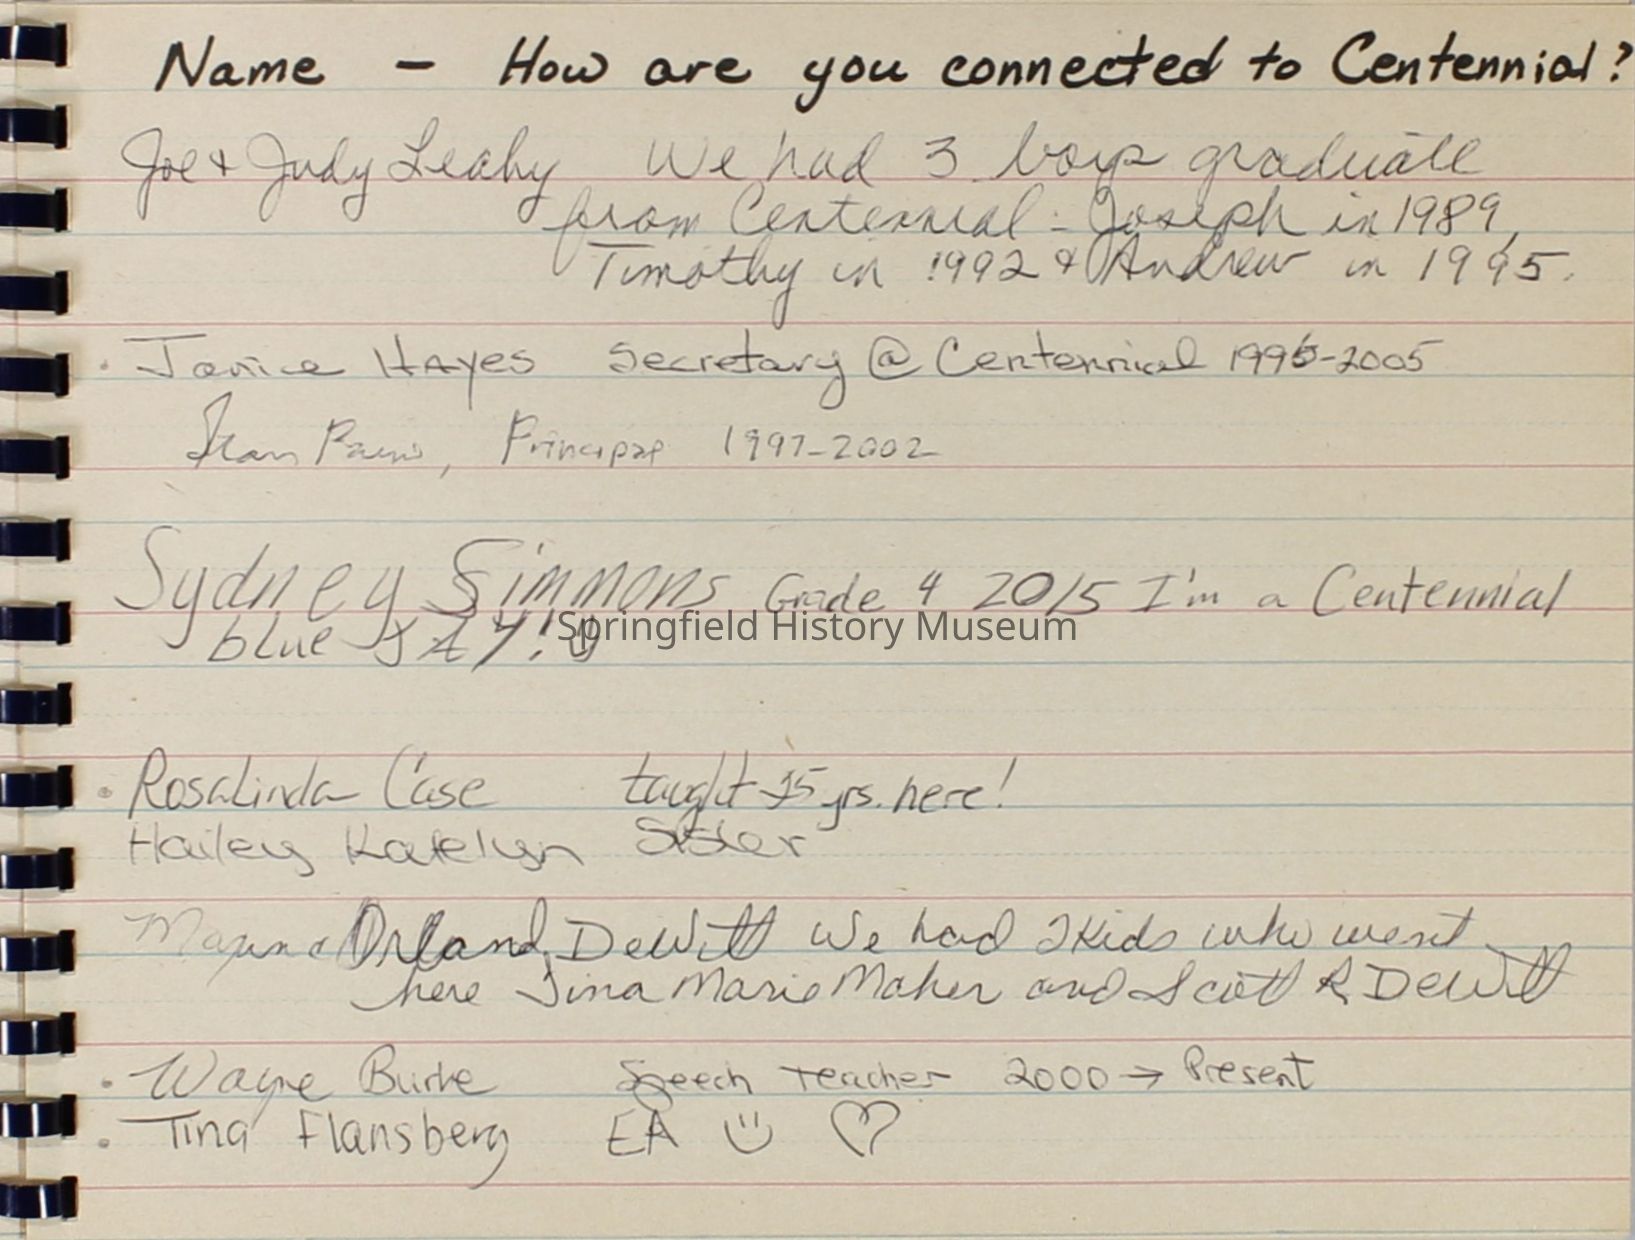 Name - How are you connected to Centennial?
Joe & Judy Leahy We had 3 boys graduate
from Centennial - Joseph in 1989,
Timothy in 1992 & Andrew in 1995.
Janice HAYES Secretary @ Centennial 1995-2005
Principal 1997-2002
Sydney Simmons Grade 4 2015 I'm a Centennial
blue JAY!
Springfield History Museum
Rosalinda Case taught 25 yrs. here!
Hailey Katelyn Sister
Orland DeWitt We had 2 Kids who went
here Tina Marie Maher and Scott R DeWitt
Wayne Burke Speech Teacher 2000 → Present
Tina Flansberg EA